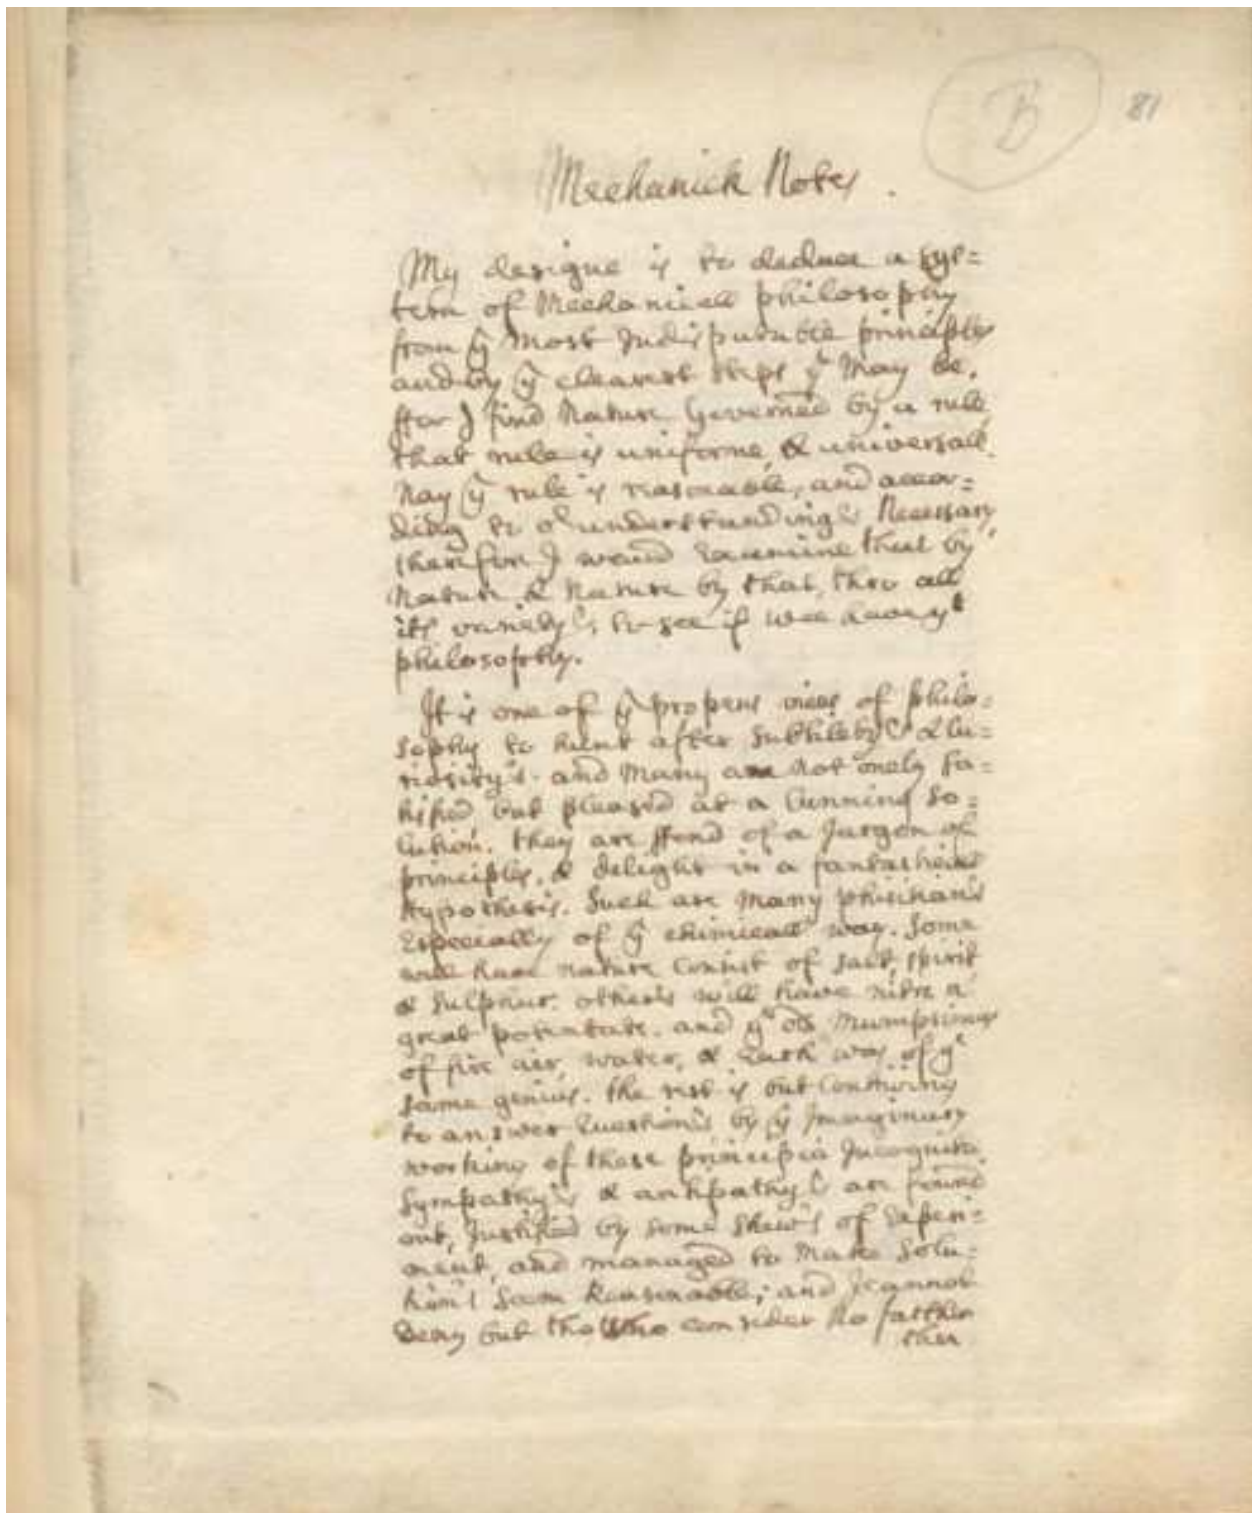 B
81
Mechanick Notes.
My designe is to deduce a sys=
tem of Mechanicall philosophy
from ye most Indisputable principles
and by ye clearest steps yt May be.
ffor I find Nature Governed by a rule
that rule is uniforme, & universall
Nay ye rule is reasonable, and accor=
ding to or understandings Necessary
therefore I would Examine that by
Nature & Nature by that, thro all
its varietys, to see if wee have yt
philosophy.
It is one of ye propens vices of philo=
sophy to hunt after subtiletys & Cu=
riosity's. and Many are Not onely sa=
tisfied but pleased at a Cunning so=
lution. they are ffond of a Jargon of
principles, & delight in a fantasticall
hypothesis. Such are Many phisitians
Especially of ye chimicall way. Some
will have nature Consist of salt, spirit
& sulphur. others will have nitre a
great potentate. and ye old Mumpsimus
of fire air, water, & Earth was of ye
same genius. the rest is but Contriving
to answer Questions by ye Imaginary
working of these principia Incognita.
Sympathys & antipathys are found
out, Justified by some shew's of Experi=
ment, and managed to Make Solu=
tions seem Reasonable; and I cannot
Deny but tho Who consider No farther
then